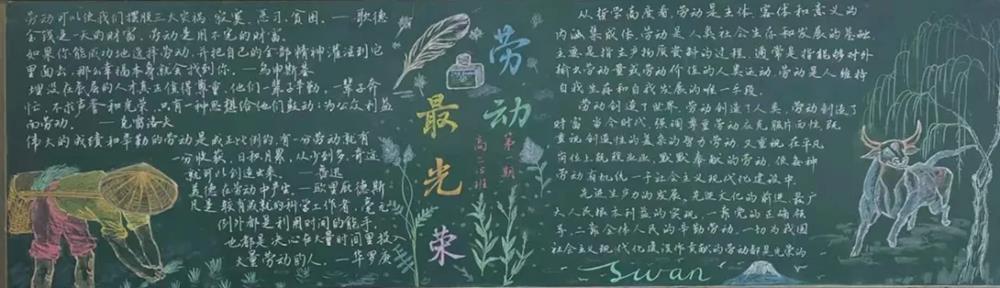 劳动可以使我们摆脱三大灾祸 寂寞、恶习、贫困。——歌德
金钱是一天的财富，劳动是用不完的财富。
如果你能成功地选择劳动，并把自己的全部精神灌注到它
里面去，那么幸福本身就会找到你。——乌申斯基
埋没在底层的人才真正值得尊重，他们一辈子辛勤，一辈子奔
忙，不求声誉和光荣，只有一种思想给他们鼓动：为公众利益
而劳动。——克雷洛夫
伟大的成绩和辛勤的劳动是成正比例的，有一分劳动就有
一分收获，日积月累，从少到多，奇迹
就可以创造出来。——鲁迅
美德在劳动中产生。——欧里庇德斯
凡是较有成就的科学工作者，毫无
例外都是利用时间的能手，
也都是决心在大量时间里投入
大量劳动的人。——华罗庚
劳动
最光荣
第一期
高二(5)班
从哲学高度看，劳动是主体、客体和意义的
内涵集成体。劳动是人类社会生存和发展的基础
主要是指生产物质资料的过程，通常是指能够对外
输出劳动量或劳动价值的人类运动，劳动是人维持
自我生存和自我发展的唯一手段。
劳动创造了世界，劳动创造了人类，劳动创造了
财富。当今时代，强调尊重劳动应克服片面性，既
重视创造性的复杂的智力劳动，又重视在平凡
岗位上兢兢业业，默默奉献的劳动，使各种
劳动有机统一于社会主义现代化建设中。
先进生产力的发展，先进文化的前进，最广
大人民根本利益的实现，一靠党的正确领
导，二靠全体人民的辛勤劳动。一切为我国
社会主义现代化建设作贡献的劳动都是光荣的
Swan